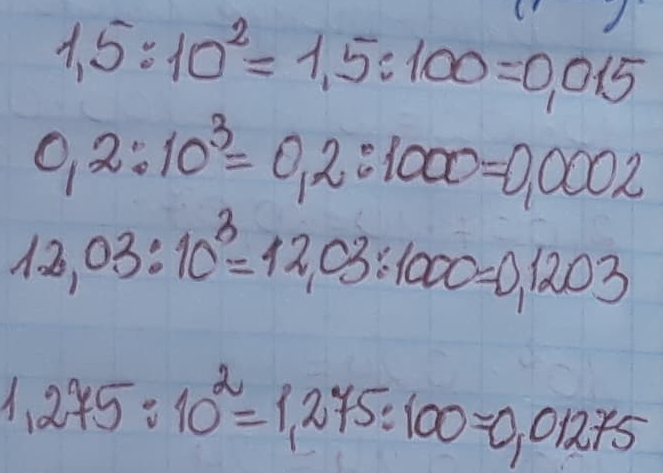 1,5 : 10² = 1,5 : 100 = 0,015
0,2 : 10³ = 0,2 : 1000 = 0,0002
12,03 : 10³ = 12,03 : 1000 = 0,1203
1,275 : 10² = 1,275 : 100 = 0,01275